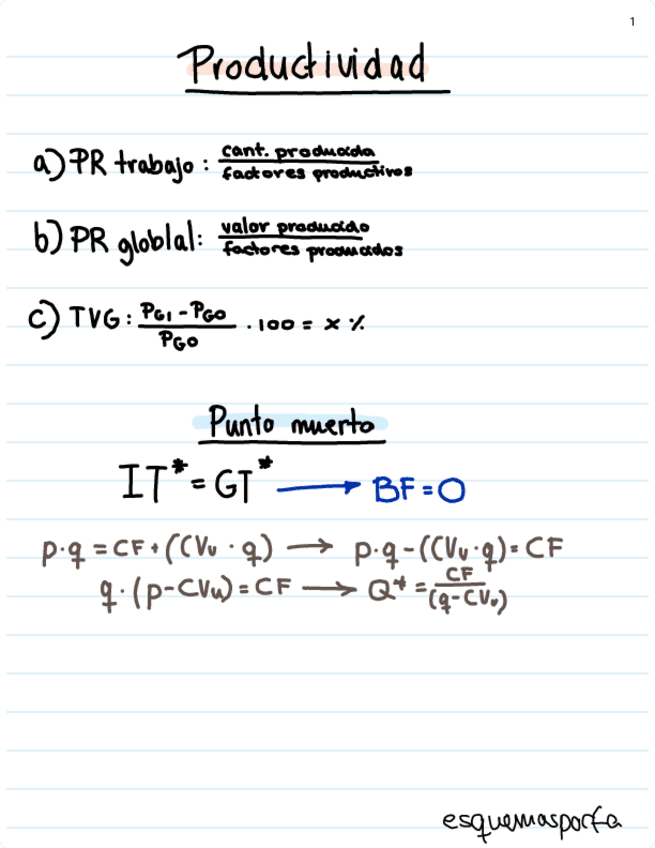 1
Productividad
a) PR trabajo: cant. producida / factores productivos
b) PR globlal: valor producido / factores producidos
c) TVG: PG1 - PG0 / PG0 · 100 = x %
Punto muerto
IT* = GT* → BF = O
p·q = CF + (CVu · q) → p·q - (CVu·q) = CF
q·(p-CVu) = CF → Q* = CF / (q-CVu)
esquemasporfa